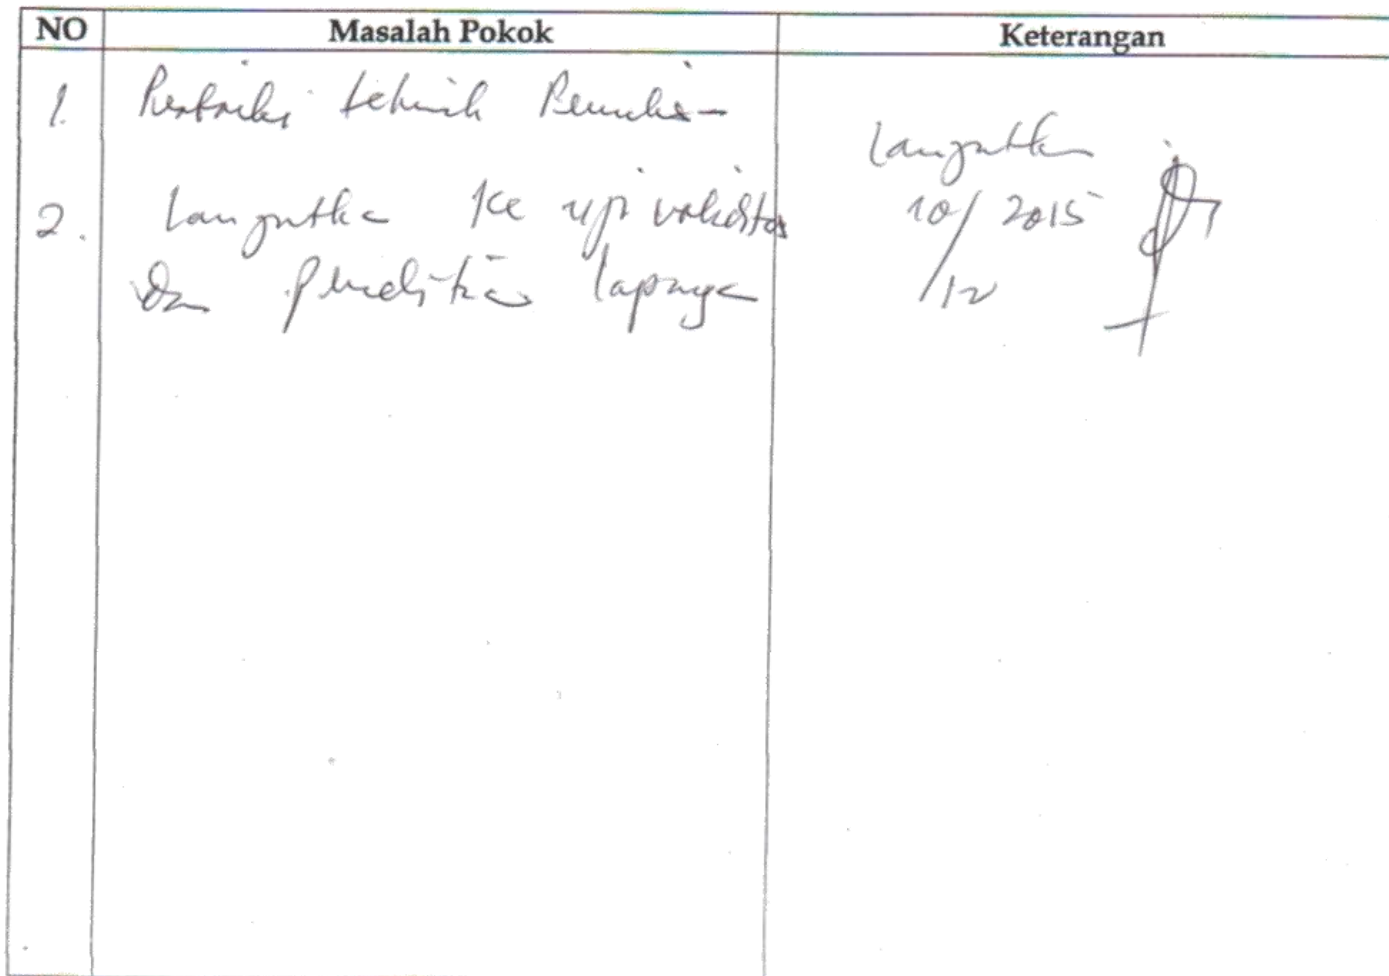 NO Masalah Pokok Keterangan
1. Perbaiki tehnik Penulisan
2. Lanjutkan ke uji validitas
dan penelitian lapangan
Lanjutkan
10/12 2015